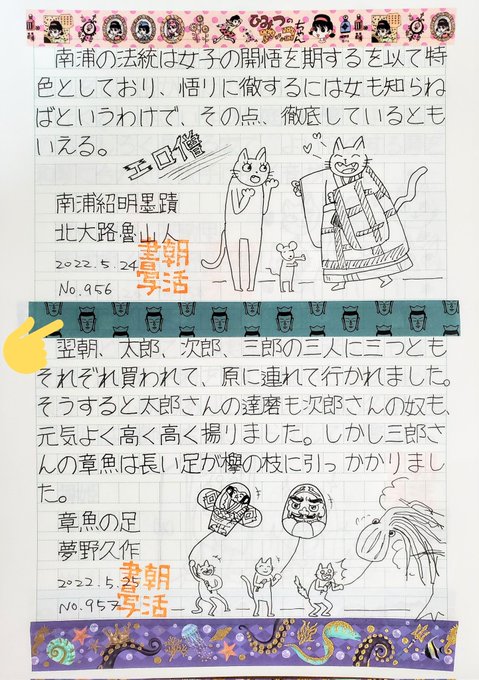 ひみつのアッコちゃん
南浦の法統は女子の開悟を期するを以て特
色としており、悟りに徹するには女も知らね
ばというわけで、その点、徹底しているとも
いえる。
エロ僧
南浦紹明墨蹟
北大路魯山人
2022.5.24
No.956
朝活
書写
翌朝、太郎、次郎、三郎の三人に三つとも
それぞれ買われて、原に連れて行かれました。
そうすると太郎さんの達磨も次郎さんの奴も、
元気よく高く高く揚りました。しかし三郎さ
んの章魚は長い足が欅の枝に引っかかりまし
た。
章魚の足
夢野久作
2022.5.25
No.957
朝活
書写